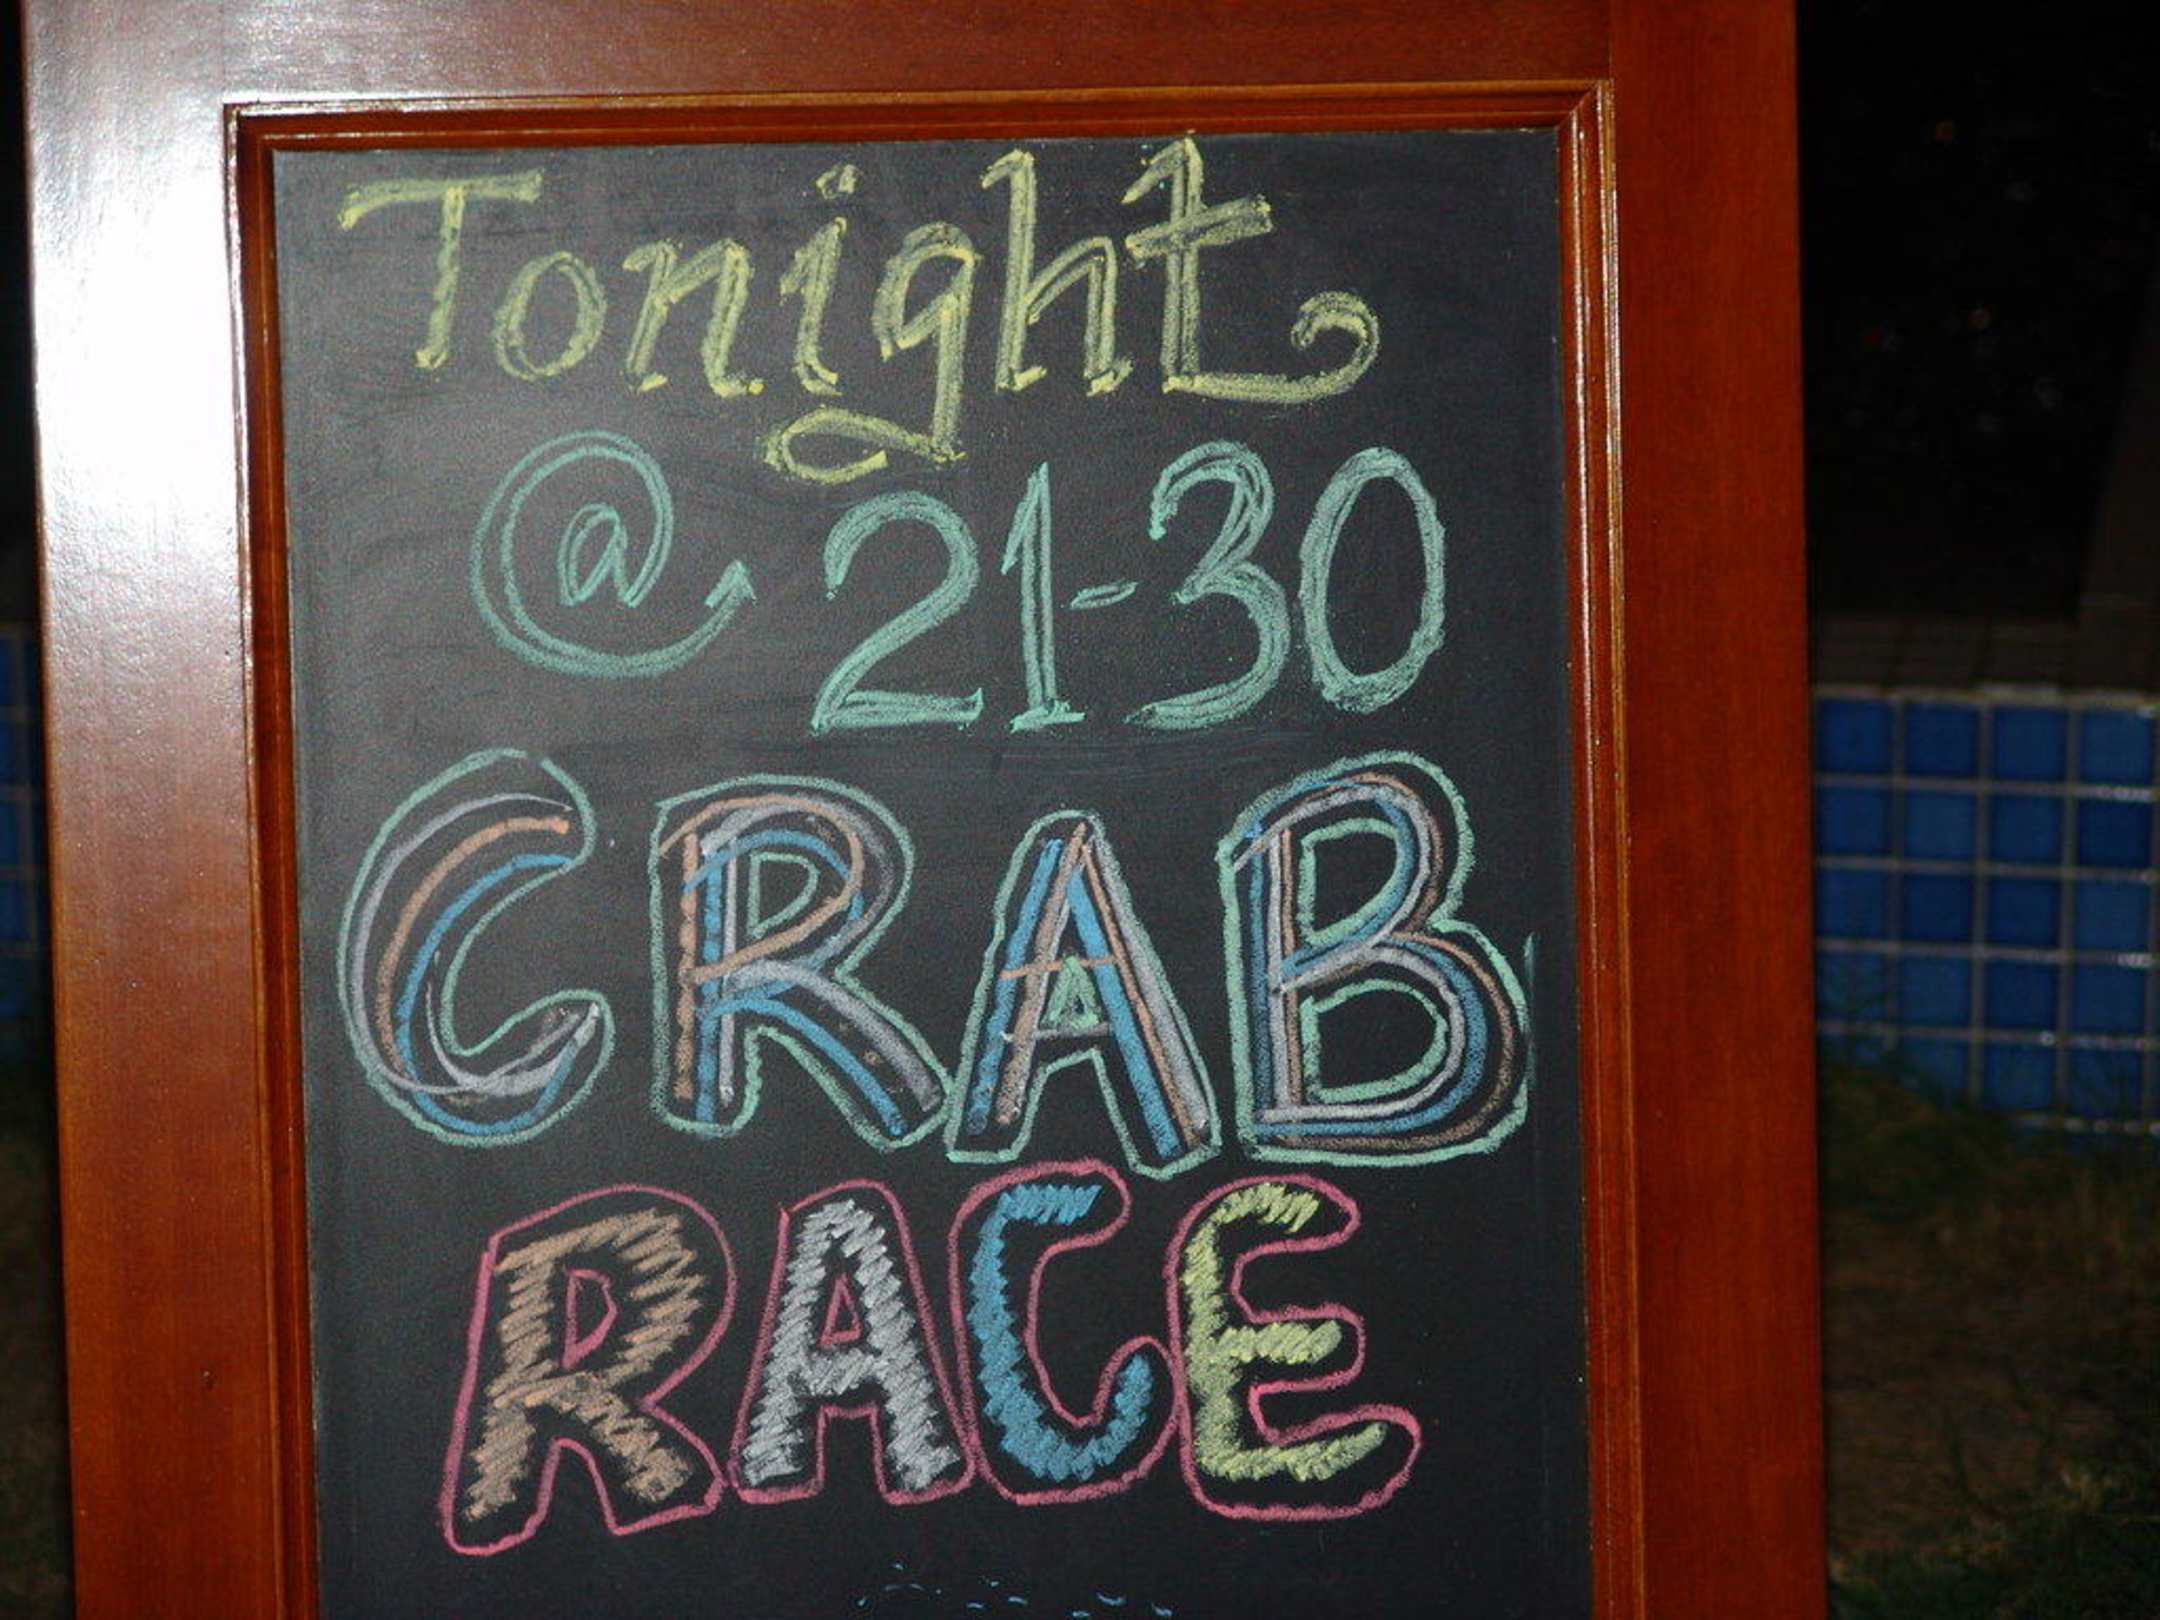 Tonight
@ 21-30
CRAB
RACE